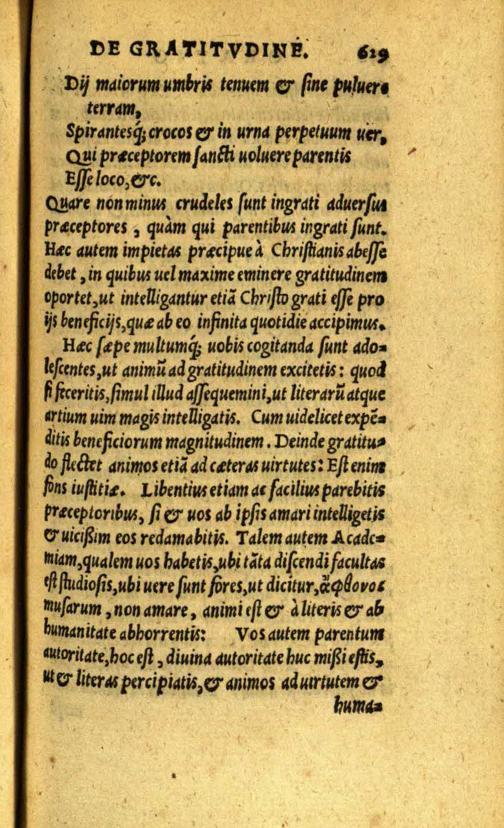 DE GRATITVDINE. 629
Dij maiorum umbris tenuem & sine puluere
terram,
Spirantesq́; crocos & in urna perpetuum uer,
Qui præceptorem sancti uoluere parentis
Esse loco, &c.
Quare non minus crudeles sunt ingrati aduersus
præceptores, quàm qui parentibus ingrati sunt.
Hæc autem impietas præcipue à Christianis abesse
debet, in quibus uel maxime eminere gratitudinem
oportet, ut intelligantur etiā Christo grati esse pro
ijs beneficijs, quæ ab eo infinita quotidie accipimus.
Hæc sæpe multumq́; uobis cogitanda sunt ado=
lescentes, ut animū ad gratitudinem excitetis: quod
si feceritis, simul illud assequemini, ut literarū atque
artium uim magis intelligatis. Cum uidelicet expē=
ditis beneficiorum magnitudinem. Deinde gratitu=
do flectet animos etiā ad cæteras uirtutes: Est enim
fons iustitiæ. Libentius etiam ac facilius parebitis
præceptoribus, si & uos ab ipsis amari intelligetis
& uicißim eos redamabitis. Talem autem Acade=
miam, qualem uos habetis, ubi tāta discendi facultas
est studiosis, ubi uere sunt fores, ut dicitur, ἄφθονοι
musarum, non amare, animi est & à literis & ab
humanitate abhorrentis: Vos autem parentum
autoritate, hoc est, diuina autoritate huc mißi estis,
ut & literas percipiatis, & animos ad uirtutem &
huma=